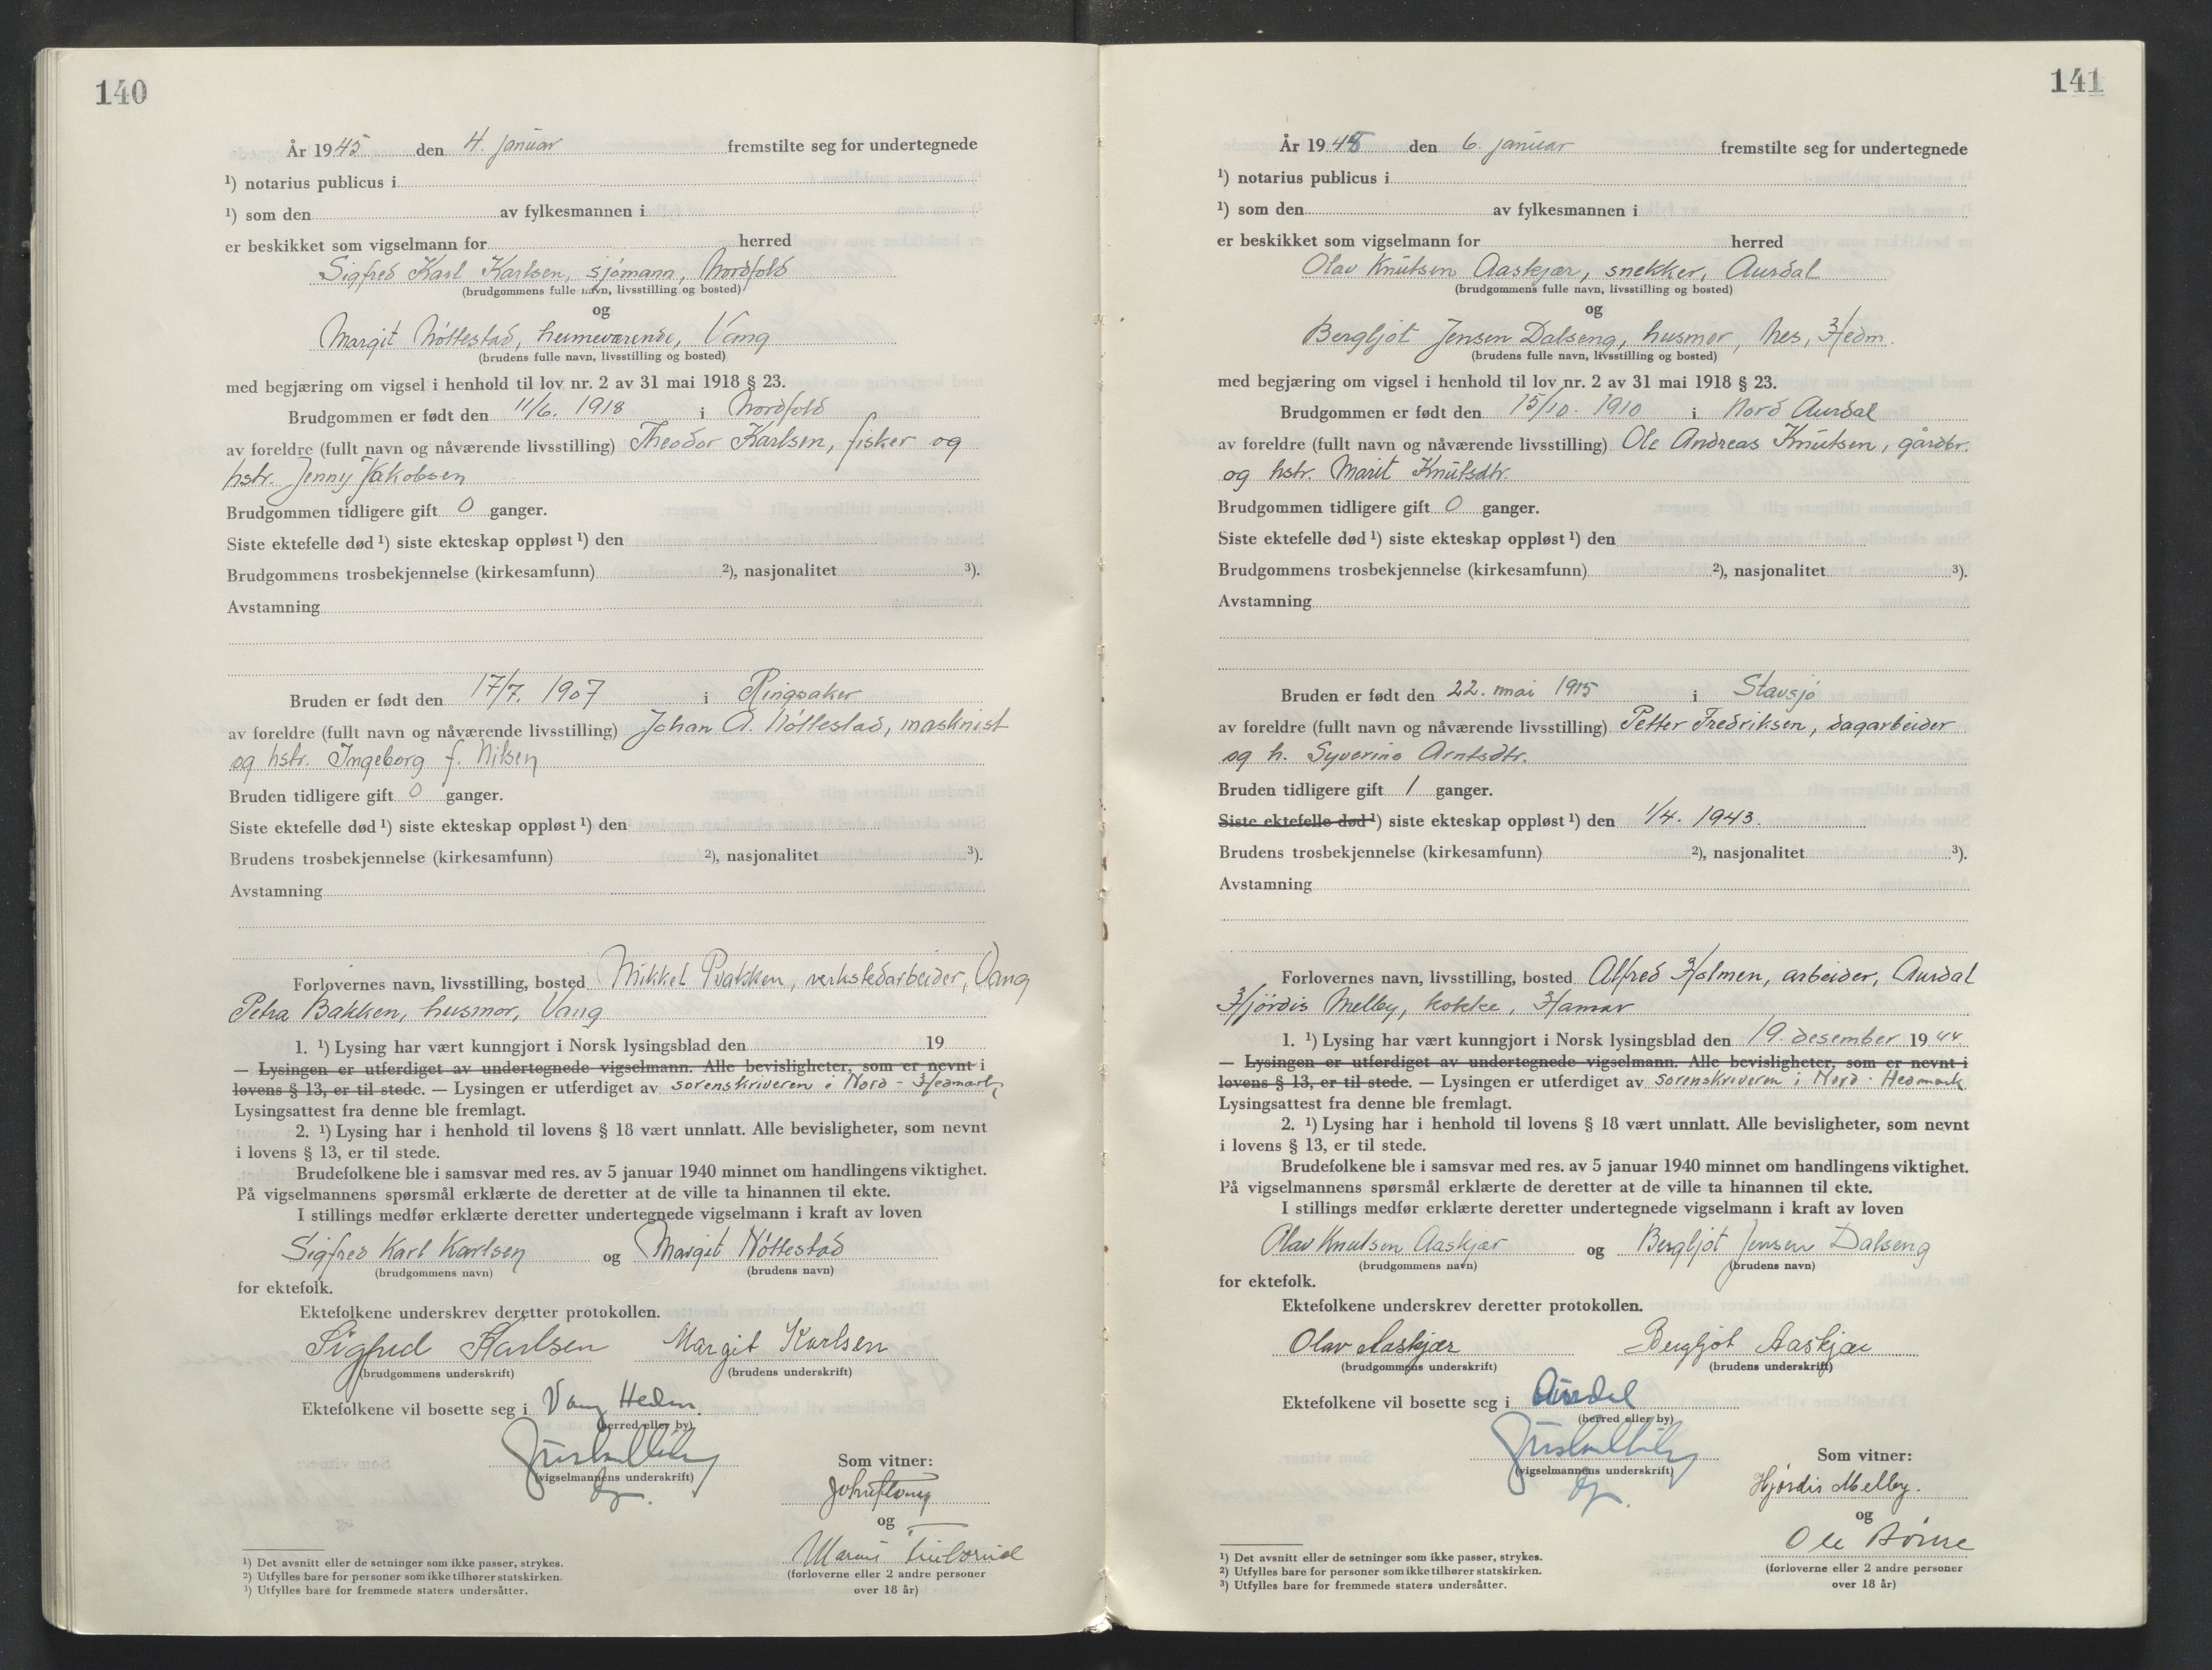 140
År 1945 den 4. januar fremstilte seg for undertegnede
¹) notarius publicus i
¹) som den av fylkesmannen i
er beskikket som vigselmann for herred
Sigfred Karl Karlsen, sjømann, Nordfold
(brudgommens fulle navn, livsstilling og bosted)
og
Margit Nøttestad, heimeværende, Vang
(brudens fulle navn, livsstilling og bosted)
med begjæring om vigsel i henhold til lov nr. 2 av 31 mai 1918 § 23.
Brudgommen er født den 11/6. 1918 i Nordfold
av foreldre (fullt navn og nåværende livsstilling) Theodor Karlsen, fisker og
hstr. Jenny Jakobsen
Brudgommen tidligere gift 0 ganger.
Siste ektefelle død ¹) siste ekteskap oppløst ¹) den
Brudgommens trosbekjennelse (kirkesamfunn) ²), nasjonalitet ³).
Avstamning
Bruden er født den 17/7. 1907 i Ringsaker
av foreldre (fullt navn og nåværende livsstilling) Johan A. Nøttestad, masknist
og hstr. Ingeborg f. Nilsen
Bruden tidligere gift 0 ganger.
Siste ektefelle død ¹) siste ekteskap oppløst ¹) den
Brudens trosbekjennelse (kirkesamfunn) ²), nasjonalitet ³).
Avstamning
Forlovernes navn, livsstilling, bosted Mikkel Bakken, verkstedarbeider, Vang
Petra Bakken, husmor, Vang
1. ¹) Lysing har vært kunngjort i Norsk lysingsblad den 19
— Lysingen er utferdiget av undertegnede vigselmann. Alle bevisligheter, som er nevnt i
lovens § 13, er til stede. — Lysingen er utferdiget av sorenskriveren i Nord - Hedmark,
Lysingsattest fra denne ble fremlagt.
2. ¹) Lysing har i henhold til lovens § 18 vært unnlatt. Alle bevisligheter, som nevnt
i lovens § 13, er til stede.
Brudefolkene ble i samsvar med res. av 5 januar 1940 minnet om handlingens viktighet.
På vigselmannens spørsmål erklærte de deretter at de ville ta hinannen til ekte.
I stillings medfør erklærte deretter undertegnede vigselmann i kraft av loven
Sigfred Karl Karlsen og Margit Nøttestad
(brudgommens navn) (brudens navn)
for ektefolk.
Ektefolkene underskrev deretter protokollen.
Sigfred Karlsen Margit Karlsen
(brudgommens underskrift) (brudens underskrift)
Ektefolkene vil bosette seg i Vang Hedm.
(herred eller by)
(vigselmannens underskrift)
Som vitner:
og
(forloverne eller 2 andre personer
over 18 år)
¹) Det avsnitt eller de setninger som ikke passer, strykes.
²) Utfylles bare for personer som ikke tilhører statskirken.
³) Utfylles bare for fremmede staters undersåtter.
141
År 1945 den 6. januar fremstilte seg for undertegnede
¹) notarius publicus i
¹) som den av fylkesmannen i
er beskikket som vigselmann for herred
Olav Knutsen Aaskjær, snekker, Aurdal
(brudgommens fulle navn, livsstilling og bosted)
og
Bergljot Jensen Dalseng, husmor, Nes, Hedm.
(brudens fulle navn, livsstilling og bosted)
med begjæring om vigsel i henhold til lov nr. 2 av 31 mai 1918 § 23.
Brudgommen er født den 15/10. 1910 i Nord Aurdal
av foreldre (fullt navn og nåværende livsstilling) Ole Andreas Knutsen, gårdbr.
og hstr. Marit Knutsdtr.
Brudgommen tidligere gift 0 ganger.
Siste ektefelle død ¹) siste ekteskap oppløst ¹) den
Brudgommens trosbekjennelse (kirkesamfunn) ²), nasjonalitet ³).
Avstamning
Bruden er født den 22. mai 1915 i Stavsjø
av foreldre (fullt navn og nåværende livsstilling) Petter Fredriksen, dagarbeider
og h. Syverine Arntsdtr.
Bruden tidligere gift 1 ganger.
Siste ektefelle død ¹) siste ekteskap oppløst ¹) den 1/4. 1943.
Brudens trosbekjennelse (kirkesamfunn) ²), nasjonalitet ³).
Avstamning
Forlovernes navn, livsstilling, bosted Alfred Holmen, arbeider, Aurdal
Hjørdis Melby, kokke, Hamar
1. ¹) Lysing har vært kunngjort i Norsk lysingsblad den 19. desember 1944.
— Lysingen er utferdiget av undertegnede vigselmann. Alle bevisligheter, som er nevnt i
lovens § 13, er til stede. — Lysingen er utferdiget av sorenskriveren i Nord - Hedmark
Lysingsattest fra denne ble fremlagt.
2. ¹) Lysing har i henhold til lovens § 18 vært unnlatt. Alle bevisligheter, som nevnt
i lovens § 13, er til stede.
Brudefolkene ble i samsvar med res. av 5 januar 1940 minnet om handlingens viktighet.
På vigselmannens spørsmål erklærte de deretter at de ville ta hinannen til ekte.
I stillings medfør erklærte deretter undertegnede vigselmann i kraft av loven
Olav Knutsen Aaskjær og Bergljot Jensen Dalseng
(brudgommens navn) (brudens navn)
for ektefolk.
Ektefolkene underskrev deretter protokollen.
Olav Aaskjær Bergljot Aaskjær
(brudgommens underskrift) (brudens underskrift)
Ektefolkene vil bosette seg i Aurdal
(herred eller by)
(vigselmannens underskrift)
Som vitner:
Hjørdis Melby.
og
Ole
(forloverne eller 2 andre personer
over 18 år)
¹) Det avsnitt eller de setninger som ikke passer, strykes.
²) Utfylles bare for personer som ikke tilhører statskirken.
³) Utfylles bare for fremmede staters undersåtter.